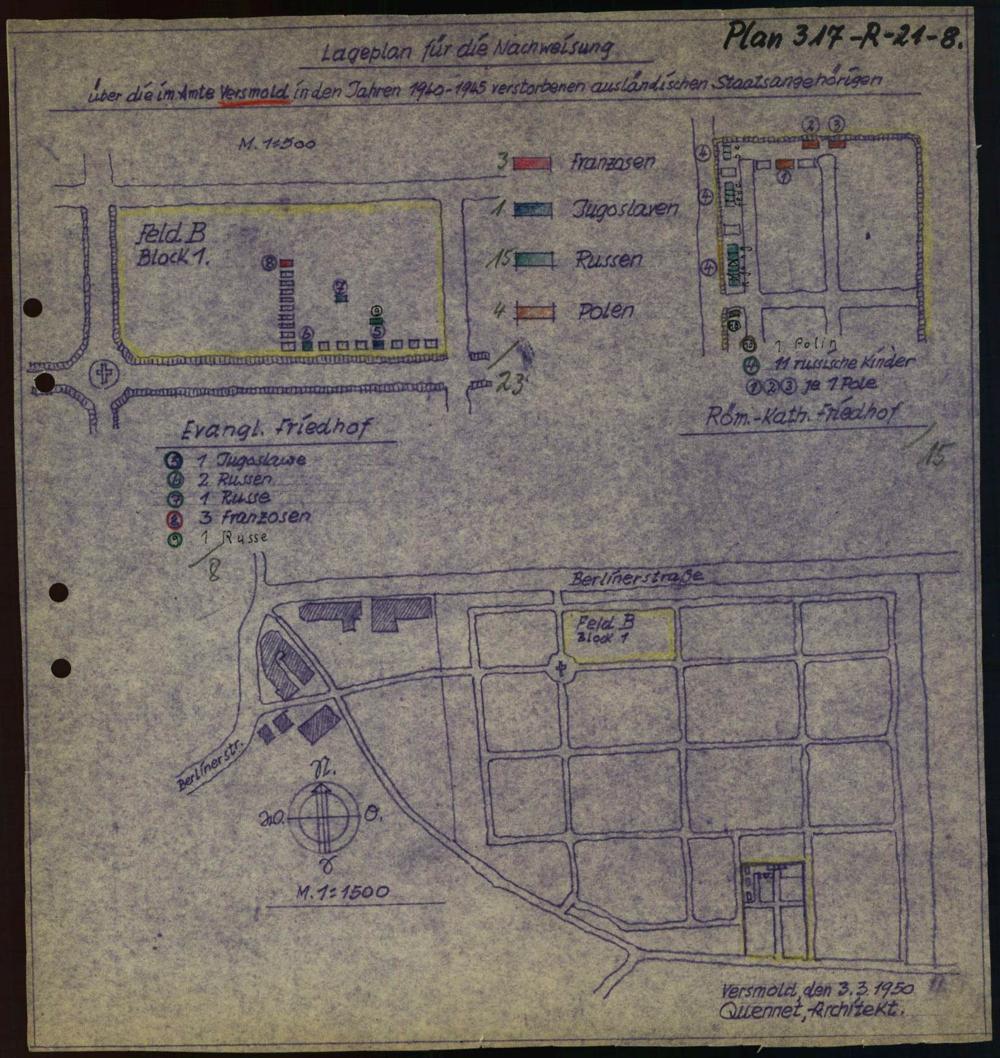 Plan 317-R-21-8.
Lageplan für die Nachweisung
über die im Amte Versmold in den Jahren 1940-1945 verstorbenen ausländischen Staatsangehörigen
M. 1:500
Feld B
Block 1.
8
7
9
6
5
3 Franzosen
1 Jugoslaven
15 Russen
4 Polen
23
2 3
4
1
4
4
1 Polin
4 11 russische Kinder
1 2 3 je 1 Pole
Röm.-Kath. Friedhof
15
Evangl. Friedhof
5 1 Jugoslawe
6 2 Russen
7 1 Russe
8 3 Franzosen
9 1 Russe
8
Berlinerstraße
Feld B
Block 1
Berlinerstr.
N.
W. O.
S
M. 1:1500
Versmold, den 3.3.1950
Quennet, Architekt.